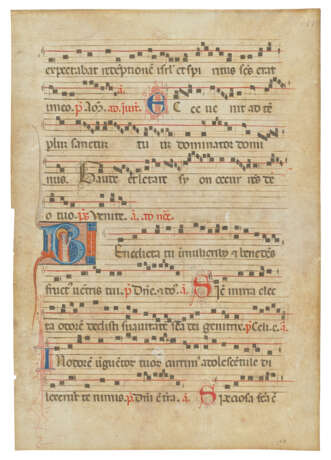 expectabat redemptionē isrl' et spi ritus scs erat
in eo. p̄s. a. ad . E C ce ve nit ad tē
plum sanctum su um dominator domi
nus. Gaude et letare sy on occur rens de
o tuo. ps Venite. a. ad noc̄.
B Enedicta tu in mulieribȝ et benedc̄s
fruct' ventris tui. p̄ Dn̄e. a. Sic mirra elec
ta odorē dedisti suavitatis sca dei genitrix. p̄ Celi e. a.
I N odorē unguētor' tuor' currim' adolescentule di
lexerunt te nimis. p̄ Dn̄i ē t̄ra. a. Speciosa fca ē